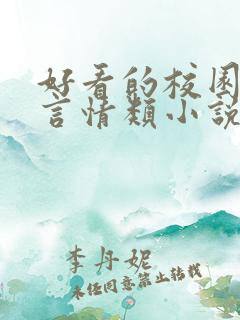 好看的校园
言情类小说
李丹妮
未经同意禁止转载